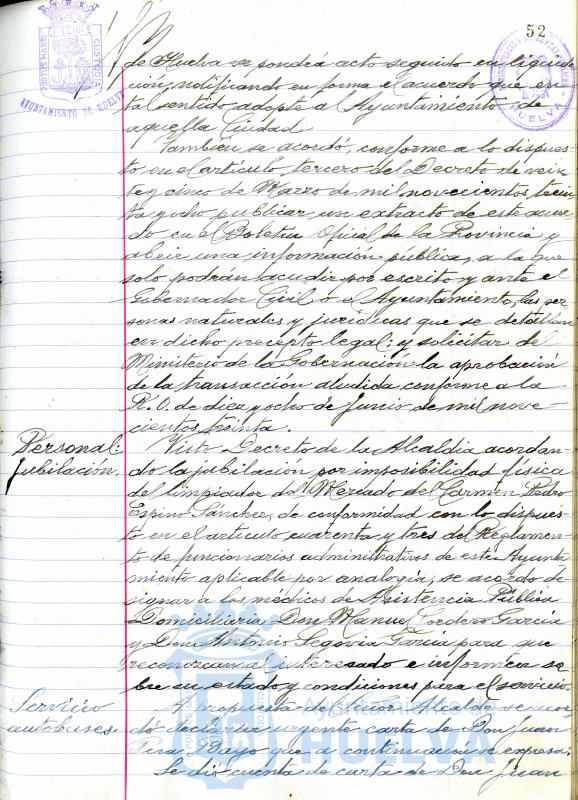 52
PORTUS MARIS ET TERRAE CUSTODIA
AYUNTAMIENTO DE HUELVA
HUELVA
de Huelva se pondrá acto seguido en liquida-
ción, notificando en forma el acuerdo que en
tal sentido adopte al Ayuntamiento de
aquella Ciudad.
También se acordó, conforme a lo dispues-
to en el artículo tercero del Decreto de vein-
te y cinco de Marzo de mil novecientos trein-
ta y ocho publicar un extracto de este acuer-
do en el Boletín Oficial de la Provincia y
abrir una información pública, a la que
solo podrán acudir por escrito y ante el
Gobernador Civil o el Ayuntamiento, las per-
sonas naturales y jurídicas que se detallan
en dicho precepto legal; y solicitar del
Ministerio de la Gobernación la aprobación
de la transacción aludida conforme a la
R. O. de diez y ocho de Junio de mil nove-
cientos treinta.
Personal:
Jubilación.
Visto Decreto de la Alcaldía acordan-
do la jubilación por imposibilidad física
del limpiador del Mercado del Carmen Pedro
Espino Sánchez, de conformidad con lo dispues-
to en el artículo cuarenta y tres del Reglamen-
to de funcionarios administrativos de este Ayunta-
miento aplicable por analogía, se acordó de-
signar a los médicos de Asistencia Pública
Domiciliaria Don Manuel Cordero García
y Don Antonio Segovia García para que
reconozcan al interesado e informen so-
bre su estado y condiciones para el servicio.
Servicio
autobuses.
A propuesta del Señor Alcalde se acor-
dó declarar urgente carta de Don Juan
que a continuación se expresa:
Se dió cuenta de carta de Don Juan
Ayuntamiento de
HUELVA